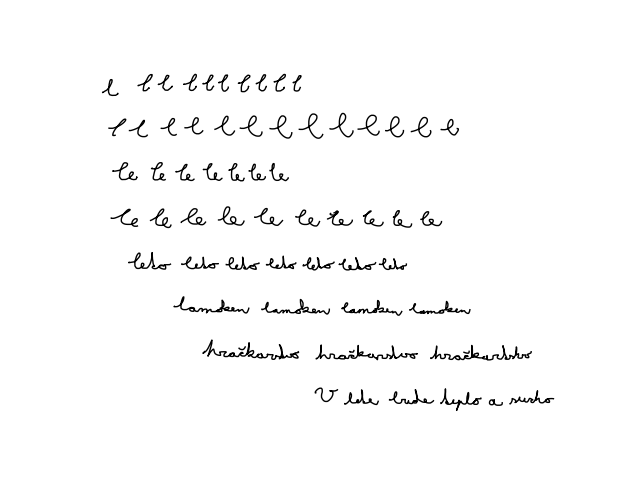 l l l l l l l l l l
l l l l l l l l l l l l l
le le le le le le le
le le le le le le le le le le
leto leto leto leto leto leto leto
lamoken lamoken lamoken lamoken
hračkarstvo hračkarstvo hračkarstvo
V lete bude teplo a sucho